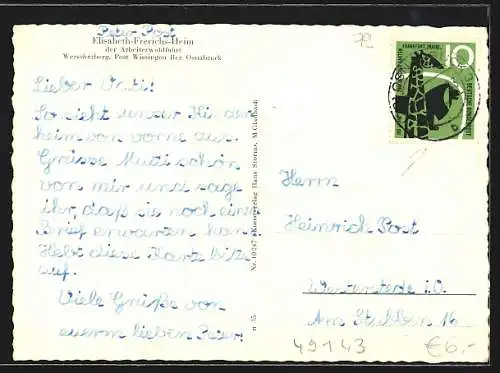 Peter Post
Elisabeth-Frerichs-Heim
der Arbeiterwohlfahrt
Werscherberg, Post Wissingen Bez. Osnabrück
Lieber Vati!
So sieht unser Kinder
heim von vorne aus.
Grüsse Mutti schön
von mir und sage
ihr, daß sie noch ein
Brief erwarten kan
Hebt diese Karte bitte
auf.
Viele Grüße von
euerm lieben Peter.
Nr. 10247 Kunstverlag Hans Storms, M.Gladbach
FRANKFURT (MAIN)
10
DEUTSCHE BUNDESPOST
Herrn
Heinrich Post
Westerstede i.O.
Am Stubben 16
49143
€6,-